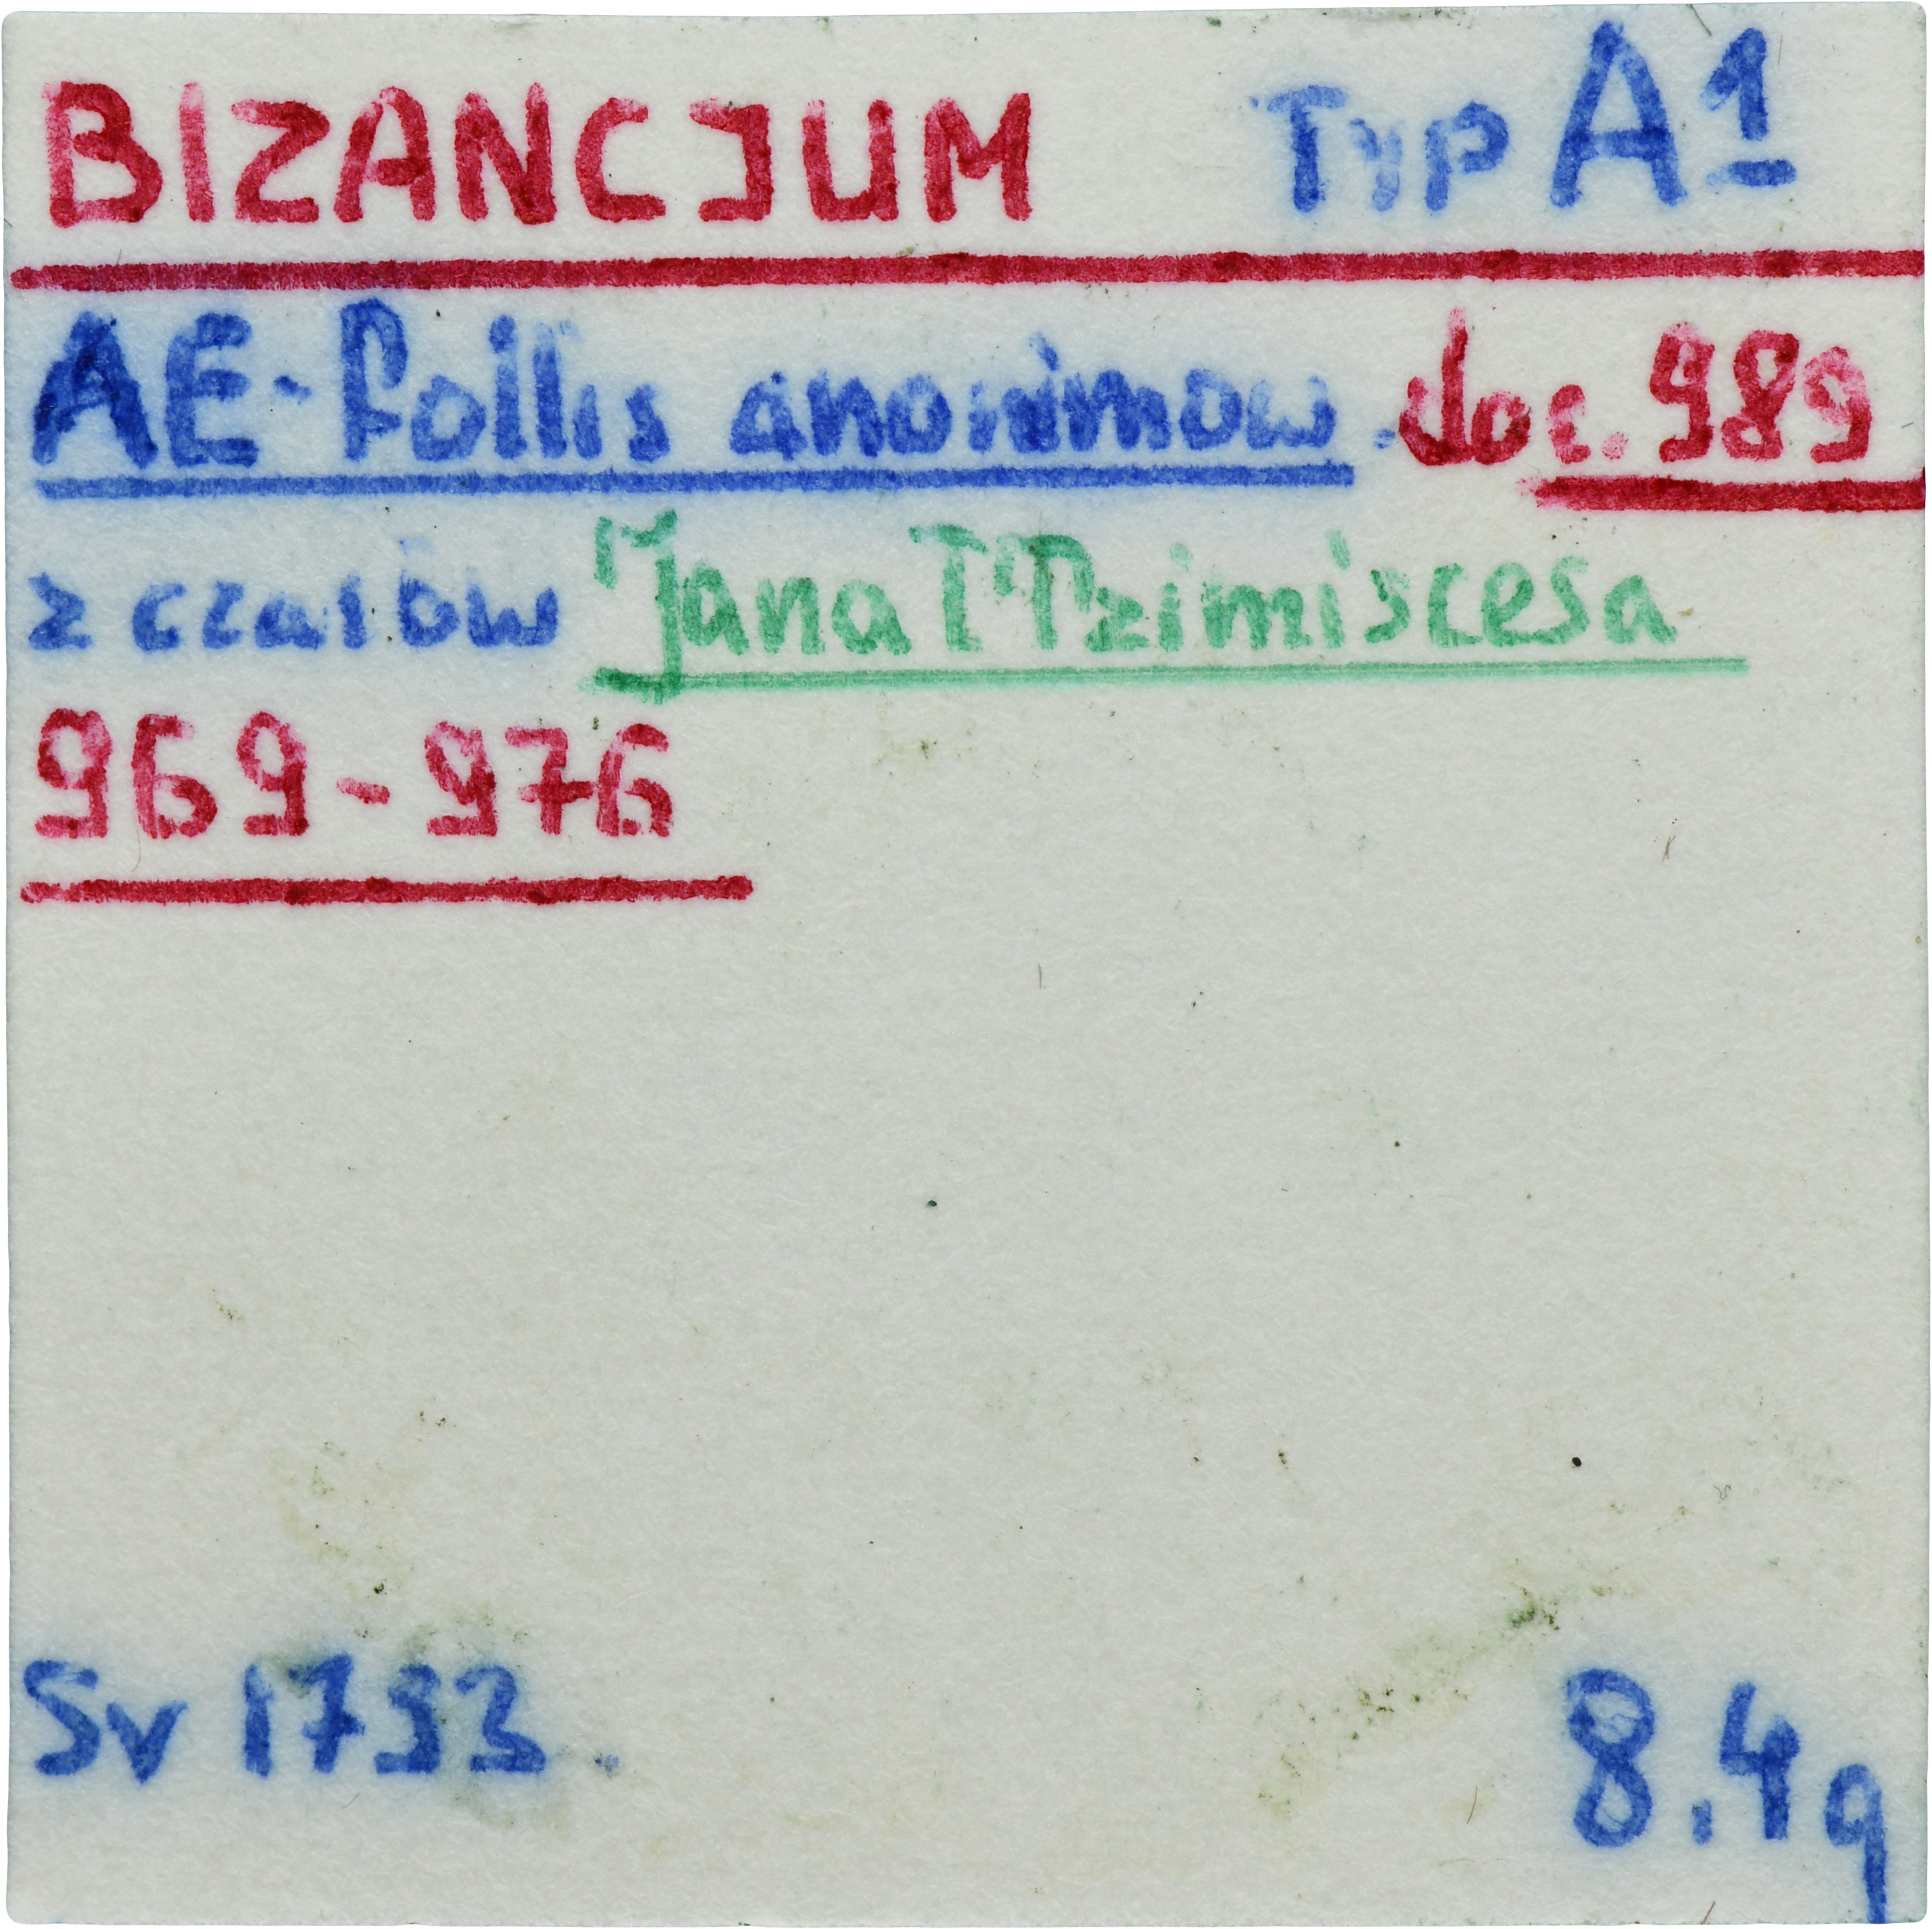 BIZANCJUM Typ A1
AE-follis anonimow. doc. 989
z czasów Jana I Tzimiscesa
969-976
Sv 1793.
8.4g